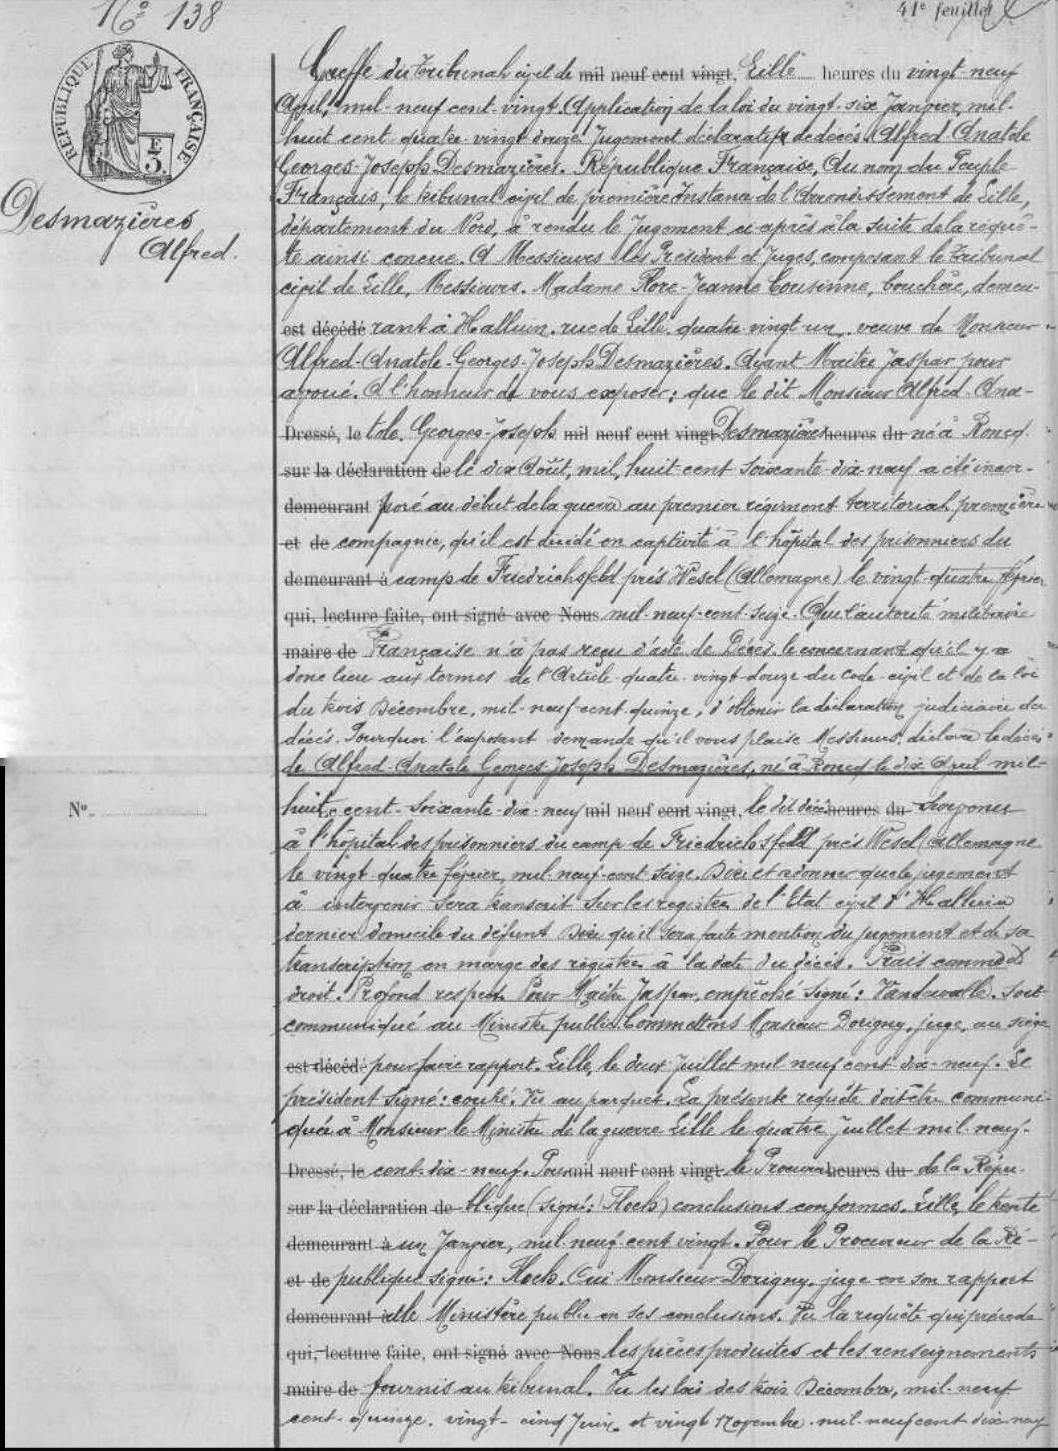 No 138
41e feuillet
RÉPUBLIQUE FRANÇAISE
F
3.
Desmazières
Alfred.
Greffe du Tribunal civil de mil neuf cent vingt, Lille heures du vingt-neuf
Avril, mil-neuf cent-vingt. Application de la loi du vingt-six Janvier, mil-
huit cent quatre vingt douze Jugement déclaratif de décès. Alfred Anatole
Georges-Joseph Desmazières. République Française, Au nom du Peuple
Français, le tribunal civil de première Instance de l'Arrondissement de Lille,
département du Nord, à rendu le Jugement ci-après à la suite de la requê-
te ainsi concue. A Messieurs les Président et Juges, composant le Tribunal
civil de Lille, Messieurs. Madame Flore-Jeanne Cousinne, bouchère, demeu-
est décédé rant à Halluin rue de Lille quatre vingt un, veuve de Monsieur
Alfred-Anatole-Georges-Joseph Desmazières. Ayant Maitre Jaspar pour
avoué. A l'honneur de vous exposer: que le dit Monsieur Alfred-Ana-
Dressé, le tole. Georges-Joseph mil neuf cent vingt Desmazières heures du né à Roncq
sur la déclaration de le dix Août, mil, huit-cent soixante-dix-neuf a été incor-
demeurant poré au début de la guerre au premier régiment territorial, première
et de compagnie, qu'il est décédé en captivité à l'hôpital des prisonniers du
demeurant à camp de Friedrichsfeld près Wesel (Allemagne) le vingt-quatre février
qui, lecture faite, ont signé avec Nous mil-neuf-cent-seize. Que l'autorité militaire
maire de Française n'à pas reçu d'acte de Décès le concernant qu'il y a
donc lieu aux termes de l'Article quatre-vingt-douze du code civil et de la loi
du trois Décembre, mil-neuf-cent-quinze, d'obtenir la déclaration judiciaire du
décès. Pourquoi l'exposant demande qu'il vous plaise Messieurs, déclarer le décès
de Alfred-Anatole Georges-Joseph Desmazières, né à Roncq le dix Avril mil-
No
huit Le cent-soixante-dix-neuf mil neuf cent vingt, le dit décès heures du survenu
à l'hôpital des prisonniers du camp de Friedrichsfeld près Wesel (Allemagne
le vingt quatre février, mil-neuf-cent seize. Dire et ordonner que le jugement
à intervenir sera transcrit sur les registres de l'Etat civil d'Halluin
dernier domicile du défunt Dire qu'il sera faite mention du jugement et de sa
transcription en marge des registres à la date du décès. Frais comme de
droit. Profond respect. Pour Maitre Jaspar, empêché signé: Vandewalle. Soit
communiqué au Ministre public. Commettons Monsieur Dorigny, juge, au siège
est décédé pour faire rapport. Lille, le deux Juillet mil neuf cent dix-neuf. Le
président signé: couhé. Vu au parquet. La présente requête doit être communi-
quée à Monsieur le Ministre de la guerre Lille le quatre juillet mil-neuf-
Dressé, le cent-dix-neuf. Pour mil neuf cent vingt le Procureur heures du de la Répu-
sur la déclaration de blique (signé: Hoch) conclusions conformes. Lille, le trente
demeurant à un Janvier, mil-neuf-cent vingt. Pour le Procureur de la Ré-
et de publique signé: Hoch. Oui Monsieur Dorigny, juge en son rapport
demeurant à le Ministère public en ses conclusions. Vu la requête qui précède
qui, lecture faite, ont signé avec Nous les pièces produites et les renseignements
maire de fournis au tribunal. Vu les lois des trois Décembre, mil-neuf
cent-quinze, vingt-cinq Juin et vingt Novembre mil-neuf cent dix neuf